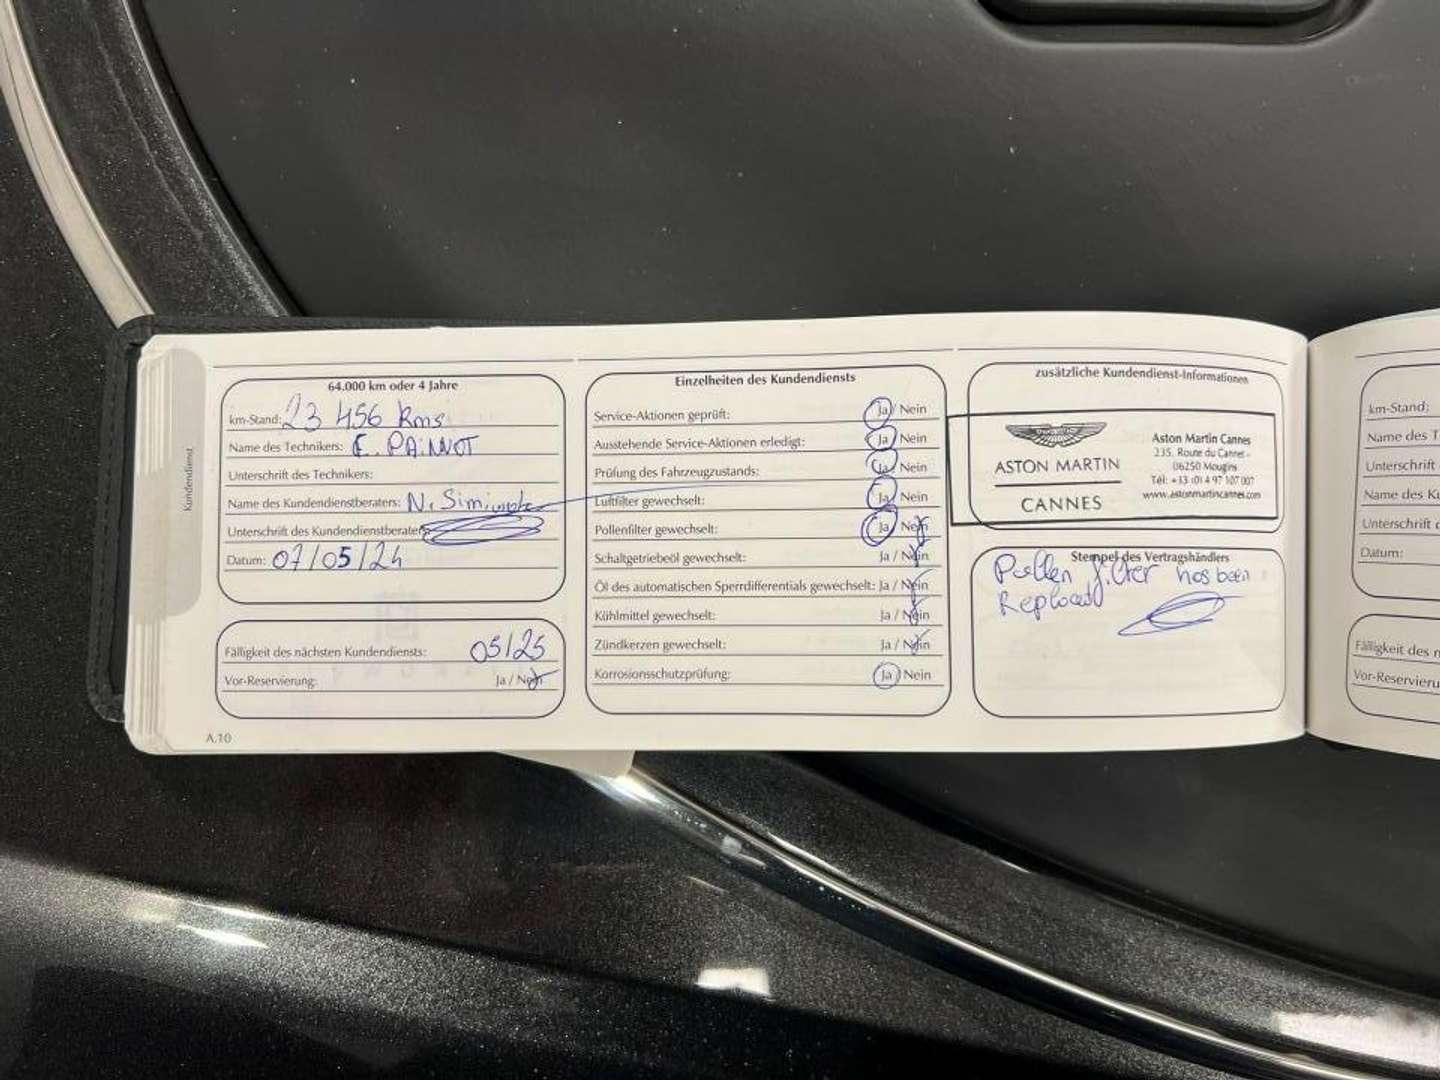 Kundendienst
64.000 km oder 4 Jahre
km-Stand: 23 456 kms
Name des Technikers: E. PAINNOT
Unterschrift des Technikers:
Name des Kundendienstberaters: N.
Unterschrift des Kundendienstberaters
Datum: 07/05/24
Fälligkeit des nächsten Kundendiensts: 05/25
Vor-Reservierung: Ja / Nein
A.10
Einzelheiten des Kundendiensts
Service-Aktionen geprüft: Ja / Nein
Ausstehende Service-Aktionen erledigt: Ja / Nein
Prüfung des Fahrzeugzustands: Ja / Nein
Luftfilter gewechselt: Ja / Nein
Pollenfilter gewechselt: Ja / Nein
Schaltgetriebeöl gewechselt: Ja / Nein
Öl des automatischen Sperrdifferentials gewechselt: Ja / Nein
Kühlmittel gewechselt: Ja / Nein
Zündkerzen gewechselt: Ja / Nein
Korrosionsschutzprüfung: Ja / Nein
zusätzliche Kundendienst-Informationen
ASTON MARTIN
CANNES
Aston Martin Cannes
235, Route du Cannet -
06250 Mougins
Tél: +33 (0)4 97 107 007
www.astonmartincannes.com
Stempel des Vertragshändlers
Pollen filter has been
Replaced
km-Stand:
Name des T
Unterschrift
Name des Ku
Unterschrift d
Datum:
Fälligkeit des n
Vor-Reservieru